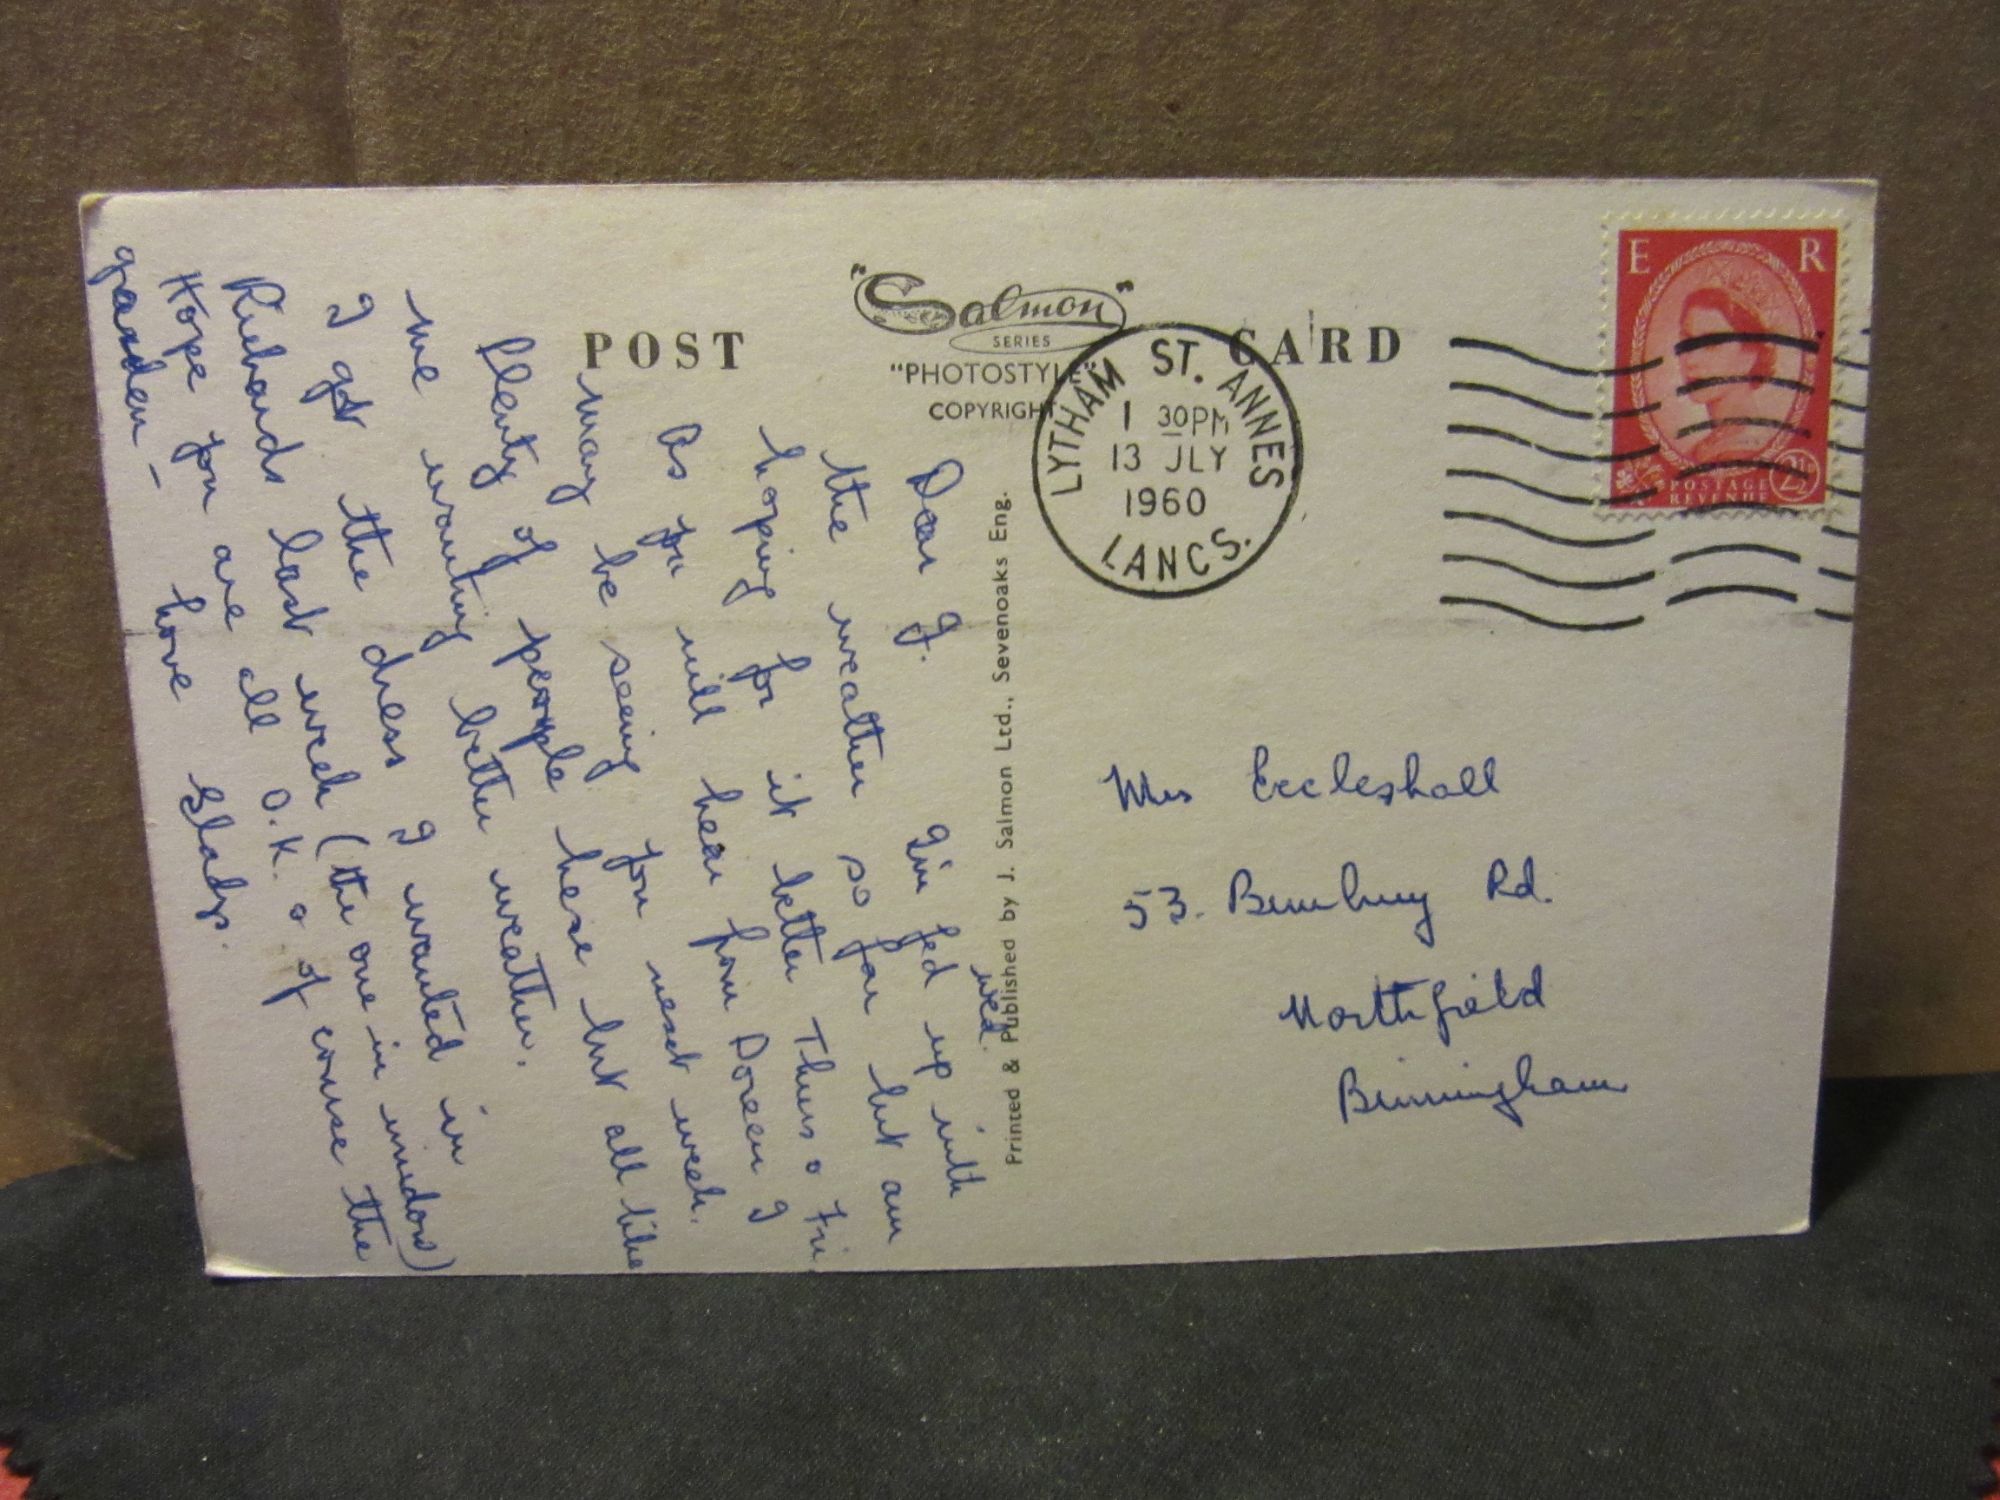 "Salmon"
SERIES
POST CARD
"PHOTOSTYLE"
COPYRIGHT
LYTHAM ST. ANNES
1 30PM
13 JLY
1960
LANCS.
E R
POSTAGE
REVENUE
2½
Printed & Published by J. Salmon Ltd., Sevenoaks Eng.
wed.
Dear J. I'm fed up with
the weather so far but am
hoping for it better Thurs & Fri.
As you will hear from Doreen I
may be seeing you next week.
Plenty of people here but all like
me wanting better weather.
I got the dress I wanted in
Richards last week (the one in window)
Hope you are all O.K. & of course the
garden –
love Gladys.
Mrs Eccleshall
53. Bunbury Rd.
Northfield
Birmingham